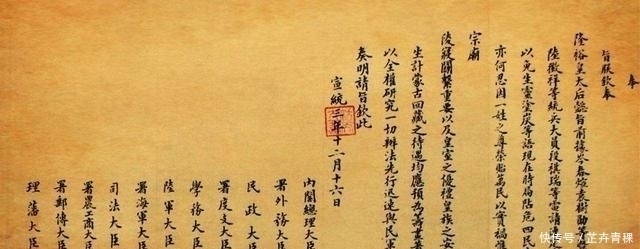 奉
旨朕欽奉
隆裕皇太后懿旨前據岑春煊袁樹勛
陸徵祥等統兵大員段祺瑞等電請
以免生靈塗炭等語現在時局阽危四民
亦何忍因一姓之尊榮拂萬民以實禍惟
宗廟
陵寢關繫重要以及皇室之優禮皇族之安
生計蒙古回藏之待遇均應預為籌畫
以全權研究一切辦法先行迅速與民軍
奏明請旨欽此
宣統三年十二月十六日
內閣總理大臣
署外務大臣
民政大臣
署度支大臣
學務大臣
陸軍大臣
署海軍大臣
司法大臣
署農工商大臣
署郵傳大臣
理藩大臣
快传号/芷卉青稞